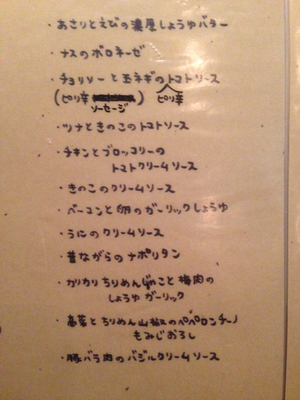 ・あさりとえびの濃厚しょうゆバター
・ナスのボロネーゼ
・チョリソーと玉ネギのトマトソース
(ピリ辛 ソーセージ) ピリ辛
・ツナときのこのトマトソース
・チキンとブロッコリーの
トマトクリームソース
・きのこのクリームソース
・ベーコンと卵のガーリックしょうゆ
・うにのクリームソース
・昔ながらのナポリタン
・カリカリちりめんじゃこと梅肉の
しょうゆガーリック
・高菜とちりめん山椒のペペロンチーノ
もみじおろし
・豚バラ肉のバジルクリームソース